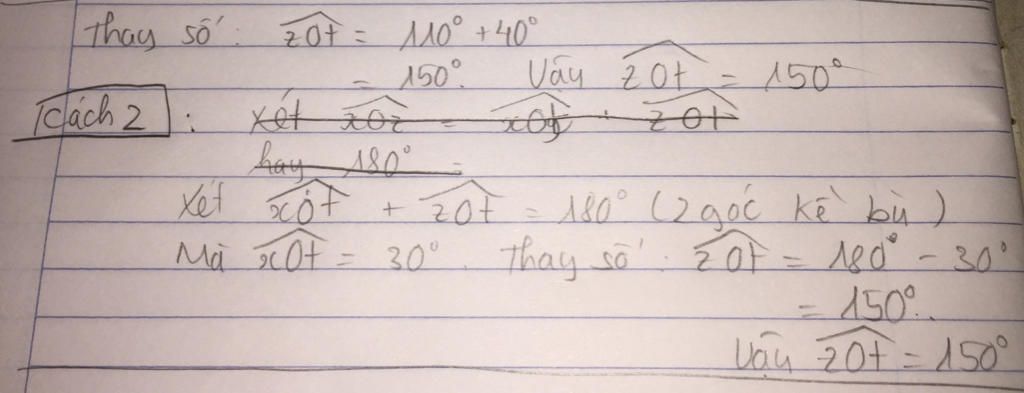 Thay số: zOt = 110° + 40°
= 150°. Vậy zOt = 150°
Cách 2 : xét xOz = xOy + zOt
hay 180° =
Xét xOt + zOt = 180° (2 góc kề bù)
Mà xOt = 30°. Thay số: zOt = 180° - 30°
= 150°.
Vậy zOt = 150°